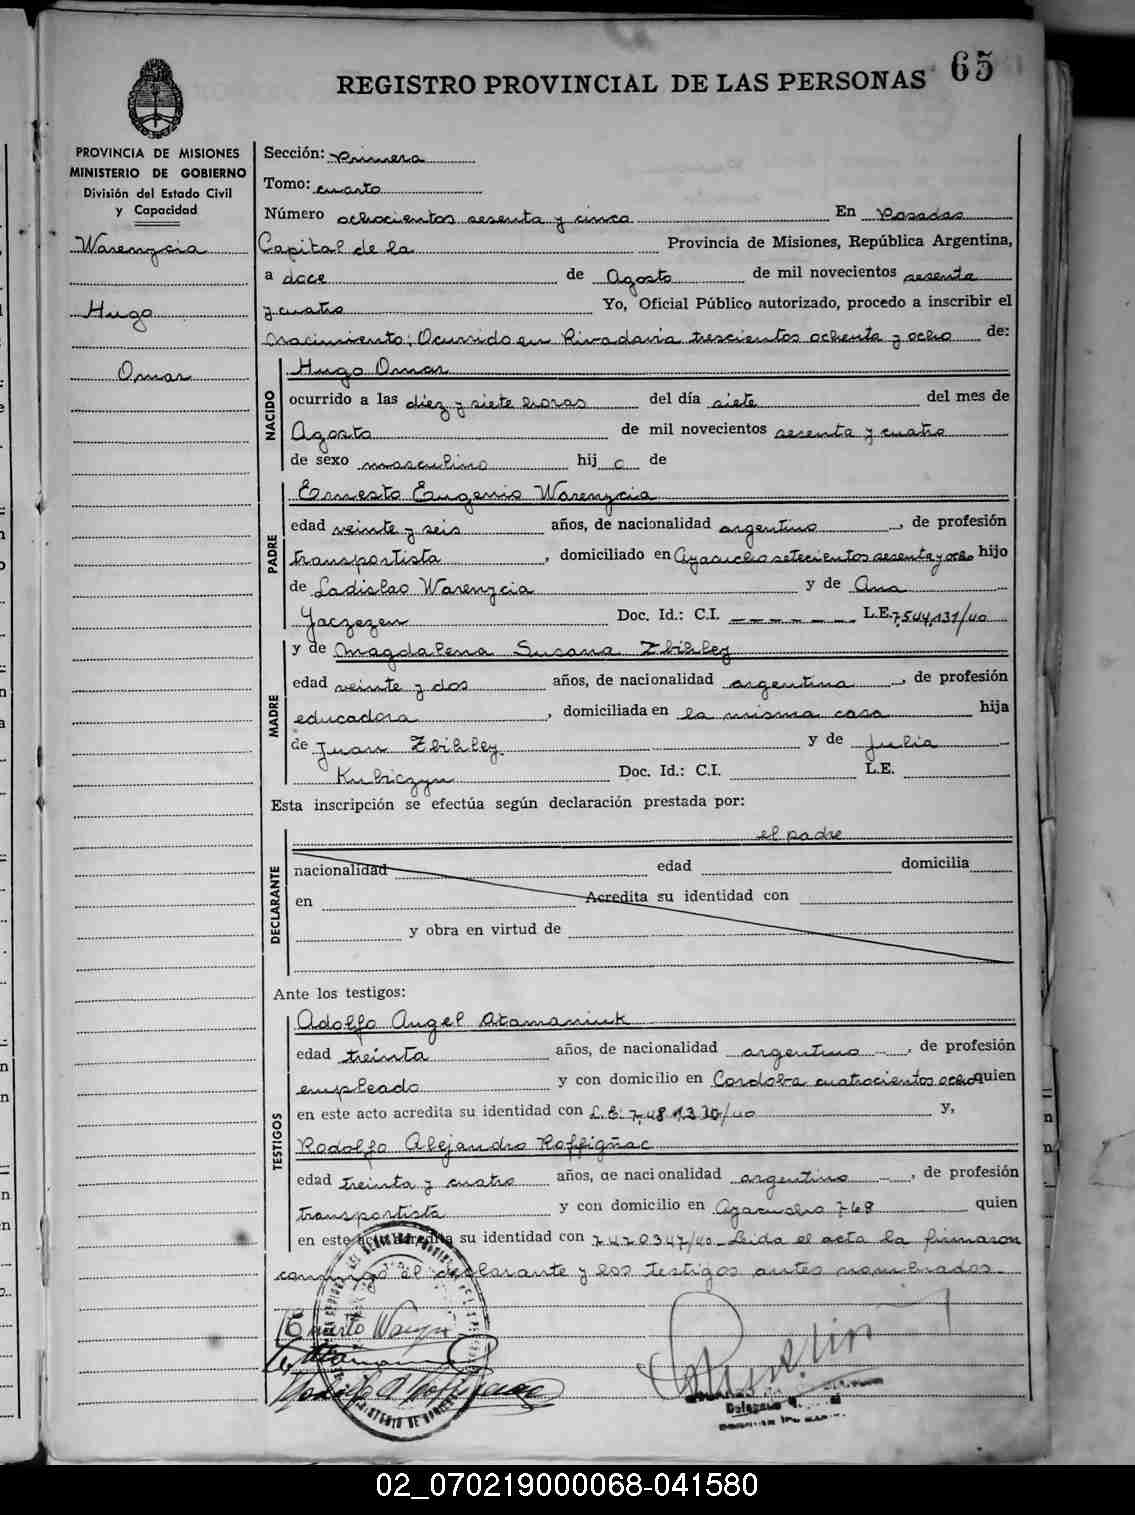 65
REGISTRO PROVINCIAL DE LAS PERSONAS
PROVINCIA DE MISIONES
MINISTERIO DE GOBIERNO
División del Estado Civil
y Capacidad
Warenycia
Hugo
Omar
Sección: Primera
Tomo: cuarto
Número ochocientos sesenta y cinco En Posadas
Capital de la Provincia de Misiones, República Argentina,
a doce de Agosto de mil novecientos sesenta
y cuatro Yo, Oficial Público autorizado, procedo a inscribir el
nacimiento; Ocurrido en Rivadavia trescientos ochenta y ocho de:
NACIDO
Hugo Omar
ocurrido a las diez y siete horas del día siete del mes de
Agosto de mil novecientos sesenta y cuatro
de sexo masculino hij o de
PADRE
Ernesto Eugenio Warenycia
edad veinte y seis años, de nacionalidad argentino, de profesión
transportista, domiciliado en Ayacucho setecientos sesenta y ocho hijo
de Ladislao Warenycia y de Ana
Yaczezen Doc. Id.: C.I. — — — — — — L.E. 7.544.131/40
MADRE
y de Magdalena Susana Zbihley
edad veinte y dos años, de nacionalidad argentina, de profesión
educadora, domiciliada en la misma casa hija
de Juan Zbihley y de Julia
Kubiczyn Doc. Id.: C.I. L.E.
Esta inscripción se efectúa según declaración prestada por:
DECLARANTE
el padre
nacionalidad edad domicilia
en Acredita su identidad con
y obra en virtud de
Ante los testigos:
TESTIGOS
Adolfo Angel Atamaniuk
edad treinta años, de nacionalidad argentino, de profesión
empleado y con domicilio en Cordoba cuatrocientos ocho quien
en este acto acredita su identidad con L.E. y,
Rodolfo Alejandro Roffignac
edad treinta y cuatro años, de nacionalidad argentino, de profesión
transportista y con domicilio en Ayacucho 768 quien
en este acto acredita su identidad con 7.420347/40 Leida el acta la firmaron
conmigo el declarante y los testigos antes nombrados.
Ernesto
02_070219000068-041580